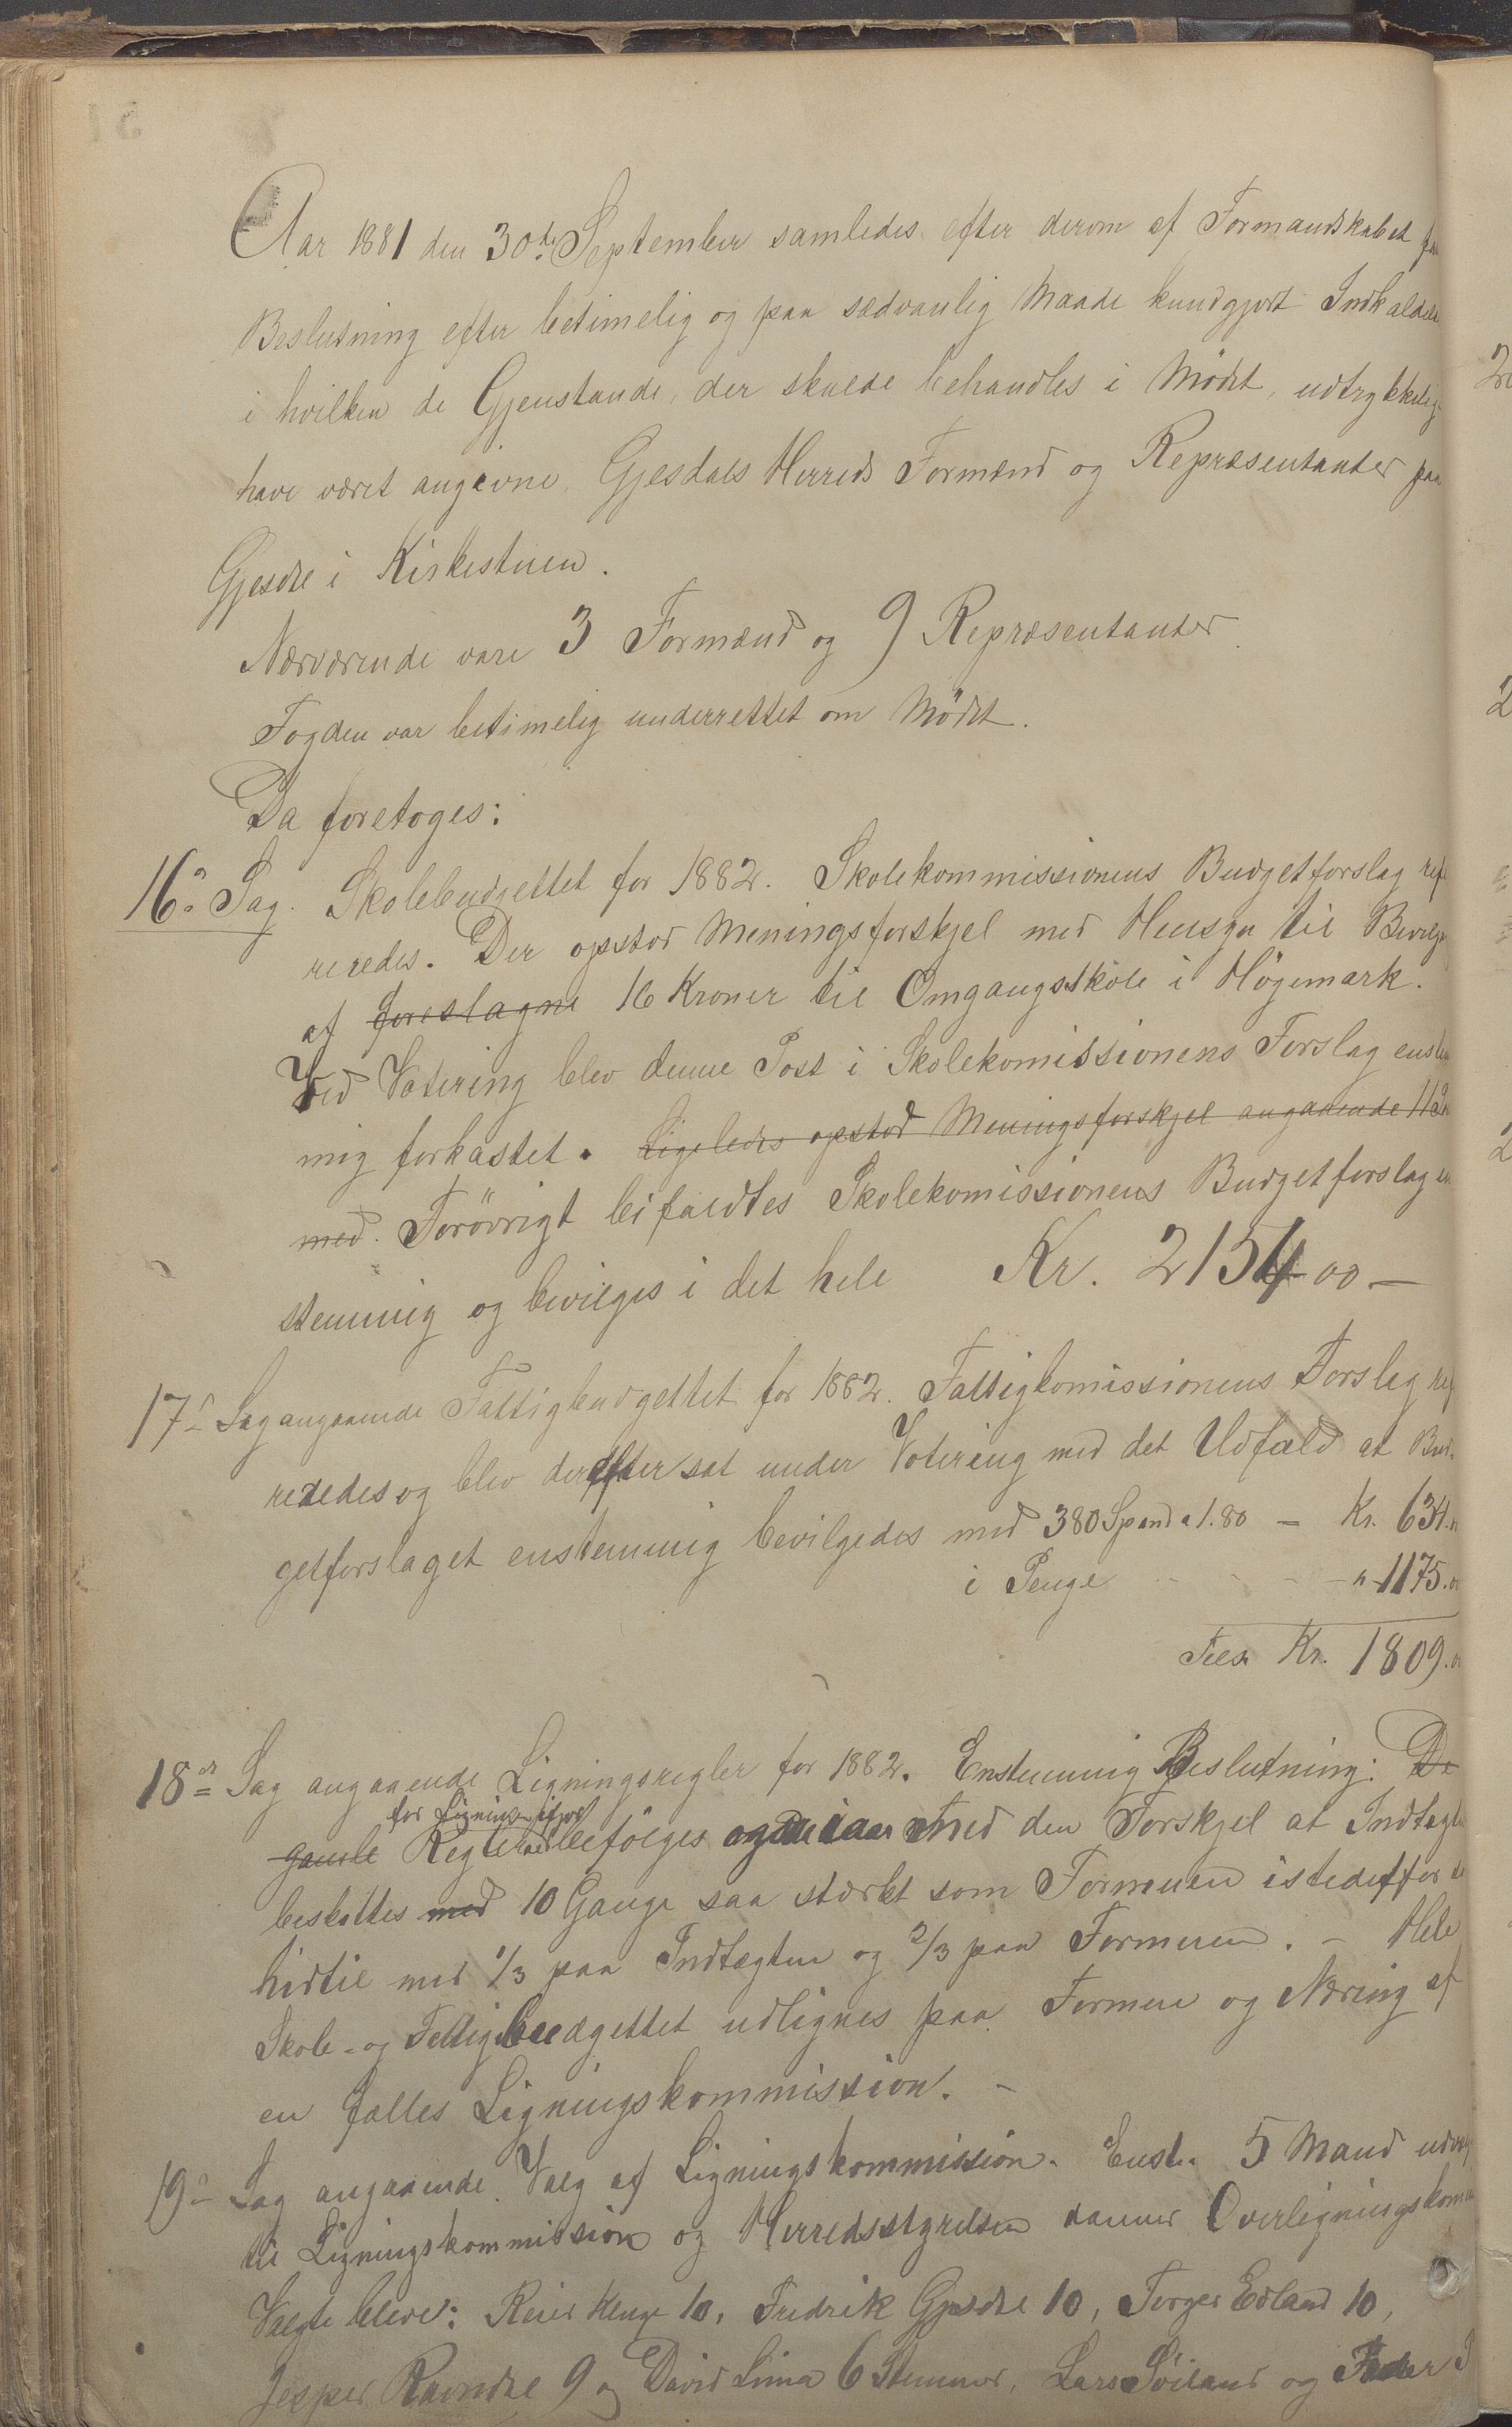 Aar 1881 den 30te September samledes efter derom af Formandskabet
Beslutning efter betimelig og paa sædvanlig Maade kundgjort Indkaldelse
i hvilken de Gjenstande, der skulde behandles i Mødet, udtrykkelig
have været angivne, Gjesdals Herreds Formænd og Repræsentanter paa
Gjesdal i Kirkestuen.
Nærværende vare 3 Formænd og 9 Repræsentanter
Fogden var betimelig underrettet om Mødet.
Da foretoges:
16de Sag. Skolebudgettet for 1882. Skolekommissionens Budgetforslag refe
reredes. Der opstod Meningsforskjel med Hensyn til Bevilgn
af foreslagne 16 Kroner til Omgangsskole i Høgemark.
Ved Votering blev denne Post i Skolekomissionens Forslag enstem
mig forkastet. Ligeledes opstod Meningsforskjel angaaende
med. Forøvrigt bifaldtes Skolekomissionens Budgetforslag en
stemmig og bevilges i det hele Kr. 2154 00 —
17de Sag angaaende Fattigbudgettet for 1882. Fattigkomissionens Forslag ref
reredes og blev derefter sat under Votering med det Udfald at Bud-
getforslaget enstemmig bevilgedes med 380 Spand a 1.80 — Kr. 634.
i Penge - - - - " 1175.
Tils. Kr. 1809.
18de Sag angaaende Ligningsregler for 1882. Enstemmig Beslutning: De
for Ligningen ifjor
gamle Regler befølges med den Forskjel at Indtægten
beskattes med 10 Gange saa stærkt som Formuen istedetfor
hidtil med 1/3 paa Indtægten og 2/3 paa Formuen. – Hele
Skole- og Fattigbudgettet udlignes paa Formue og Næring af
en fælles Ligningskommission. –
19de Sag angaaende Valg af Ligningskommission. Enst. 5 Mand
til Ligningskommission og Herredsstyrelsen danner Overligningskom
Valgte bleve: Reier Kluge 10, Fredrik Gjesdal 10, Torger Edland 10,
Jesper Ravndal 9 og David Lima 6 Stemmer, Lars Søiland og Peder